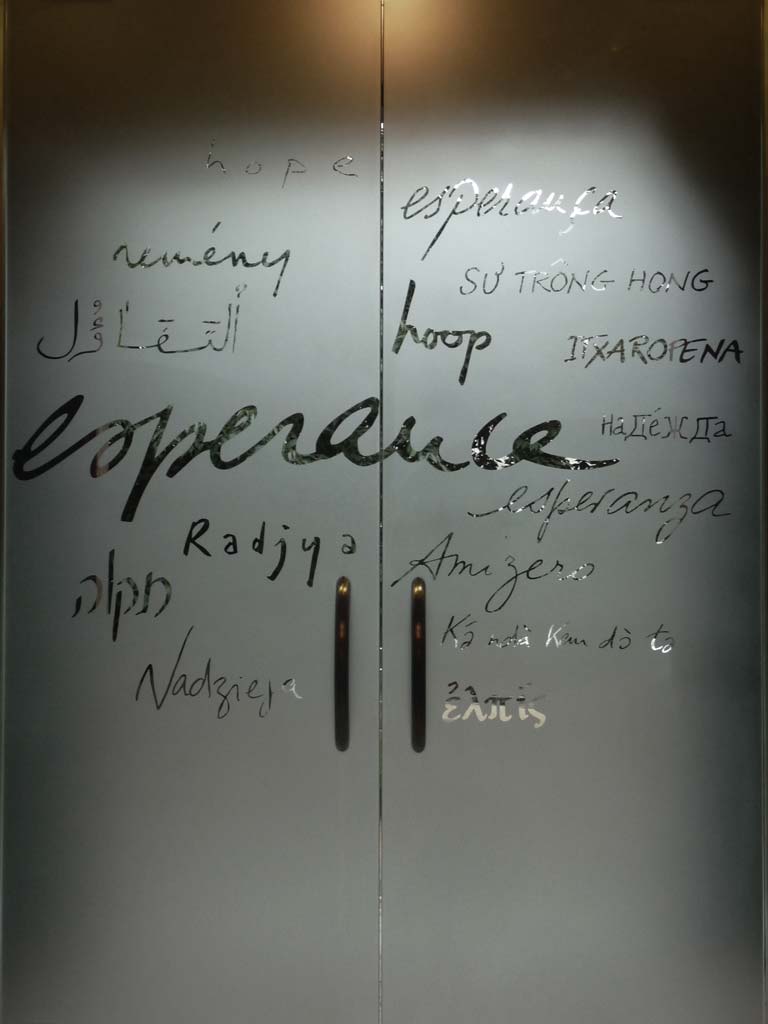 hope
esperança
remény
SỰ TRÔNG HONG
التفاؤل
hoop
ITXAROPENA
esperance
надéжда
esperanza
Radjya
Amizero
תקוה
Nadzieja
ἐλπίς